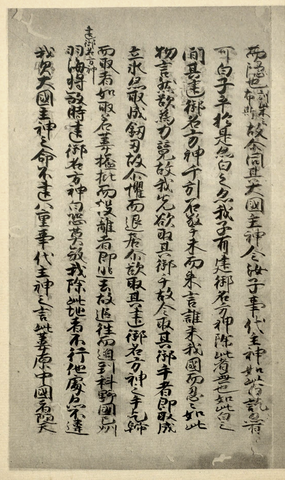 而隱也訓柴云布斯故尓問其大國主神今汝子事代主神如此白訖亦有
可白子乎於是亦白之亦我子有建御名方神除此者無也如此白之
間其建御名方神千引石擎手末而来言誰来我國而忍々如此
物言然欲為力競故我先欲取其御手故令取其御手者即取成
立氷亦取成釼刃故尓懼而退居尓欲取其建御名方神之手乞歸
建御名方神
而取者如取若葦搤批而投離者即逃去故追往而迫到科野國之州
羽海将殺時建御名方神白恐莫殺我除此地者不行他處亦不違
我父大國主神之命不違八重事代主神之言此葦原中國者随天